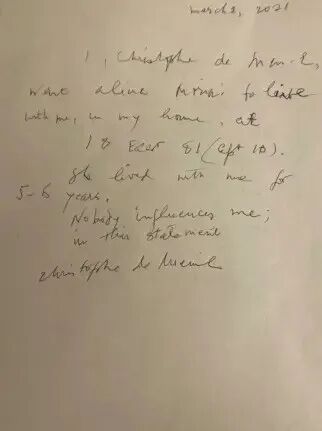 March 2, 2021
I, Christophe de Menil,
want alina to live
with me, in my home, at
18 East 81 (apt 1A).
She lived with me for
5-6 years.
Nobody influences me;
in this statement
Christophe de Menil